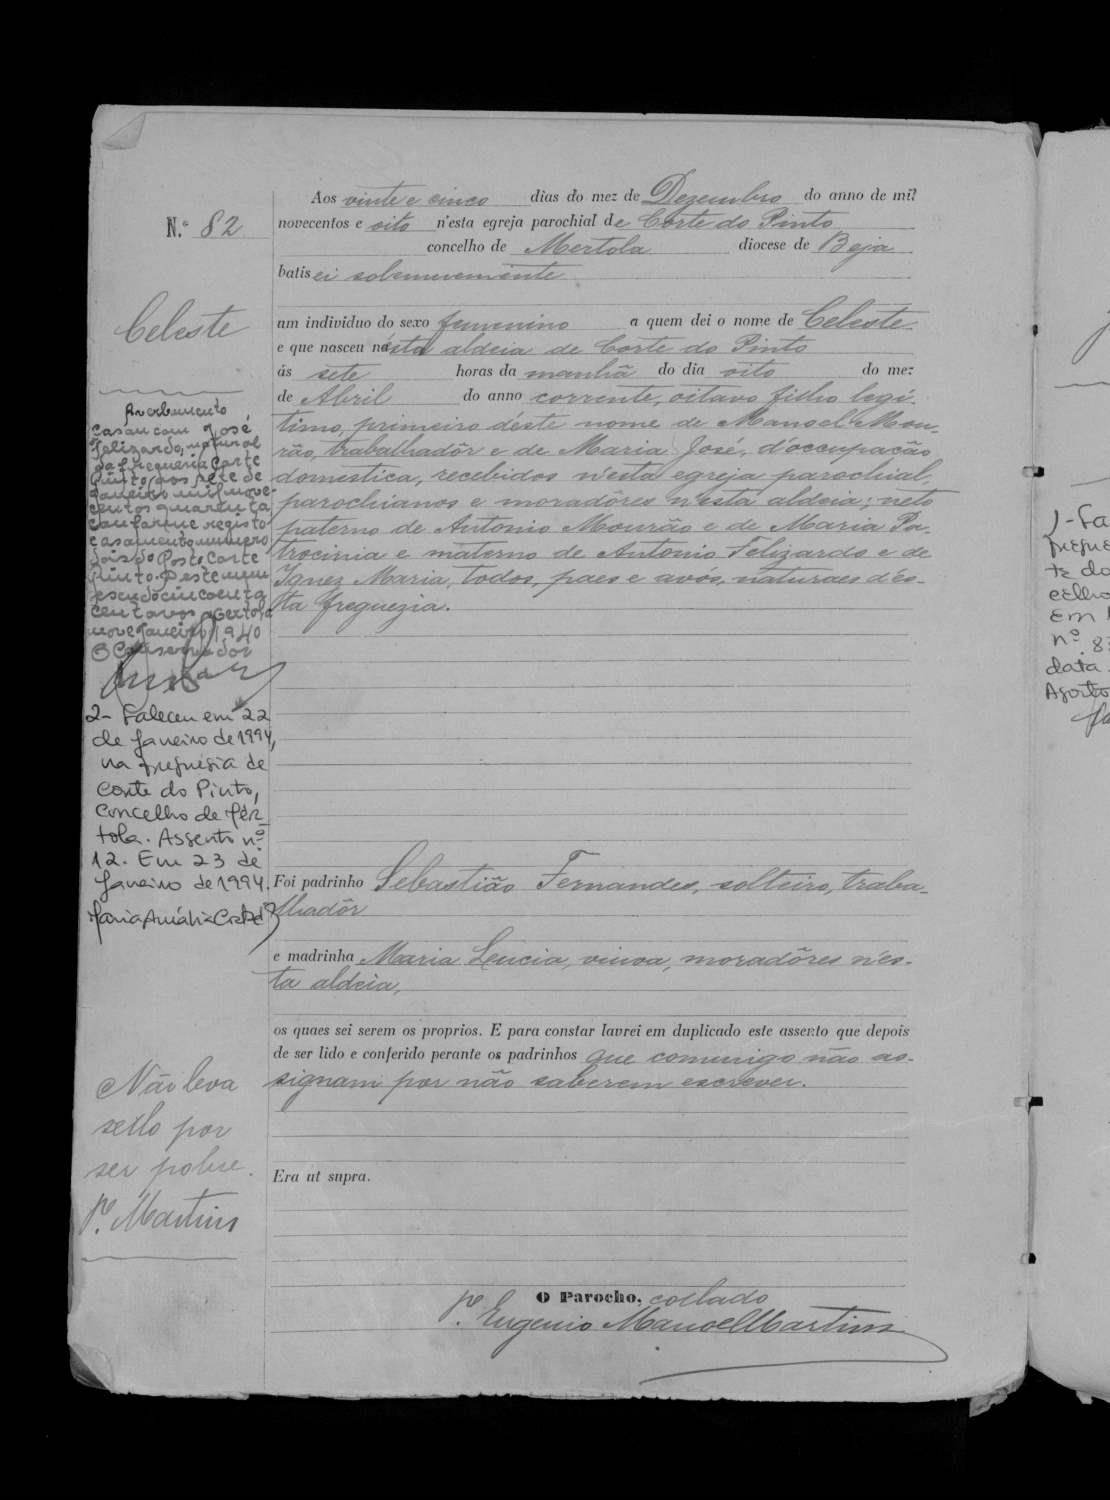 N.º 82
Celeste
Averbamento
Casou com José
Felizardo, natural
da freguesia Corte
Pinto, aos sete de
Janeiro mil nove-
centos quarenta
conforme registo
casamento numero
dois do Posto Corte
Pinto. Deste um
escudo cincoenta
centavos. Mertola
nove Janeiro 1940
O Conservador
2- Faleceu em 22
de Janeiro de 1994,
na freguesia de
Corte do Pinto,
Concelho de Mér-
tola. Assento nº
12. Em 23 de
Janeiro de 1994.
Maria Amália
Não leva
sello por
ser pobre.
Pe. Martins
Aos vinte e cinco dias do mez de Dezembro do anno de mil
novecentos e oito n'esta egreja parochial de Corte do Pinto
concelho de Mertola diocese de Beja
batisei solemnemente
um individuo do sexo femenino a quem dei o nome de Celeste
e que nasceu nésta aldeia de Corte do Pinto
ás sete horas da manhã do dia oito do mez
de Abril do anno corrente, oitavo filho legi-
timo, primeiro déste nome de Manoel Mou-
rão, trabalhadôr e de Maria José, d'occupação
domestica, recebidos n'esta egreja parochial,
parochianos e moradôres n'esta aldeia; neto
paterno de Antonio Mourão e de Maria Pa-
trocinia e materno de Antonio Felizardo e de
Ignez Maria, todos, paes e avós, naturaes d'es-
ta freguezia.
Foi padrinho Sebastião Fernandes, solteiro, traba-
lhadôr
e madrinha Maria Lucia, viuva, moradôres n'es-
ta aldeia,
os quaes sei serem os proprios. E para constar lavrei em duplicado este assento que depois
de ser lido e conferido perante os padrinhos que comimigo não as-
signam por não saberem escrever.
Era ut supra.
O Parocho, collado
Pe. Eugenio Manoel Martins
1-Fa
fregue
te do
celho
Em
nº 8
data
Agosto